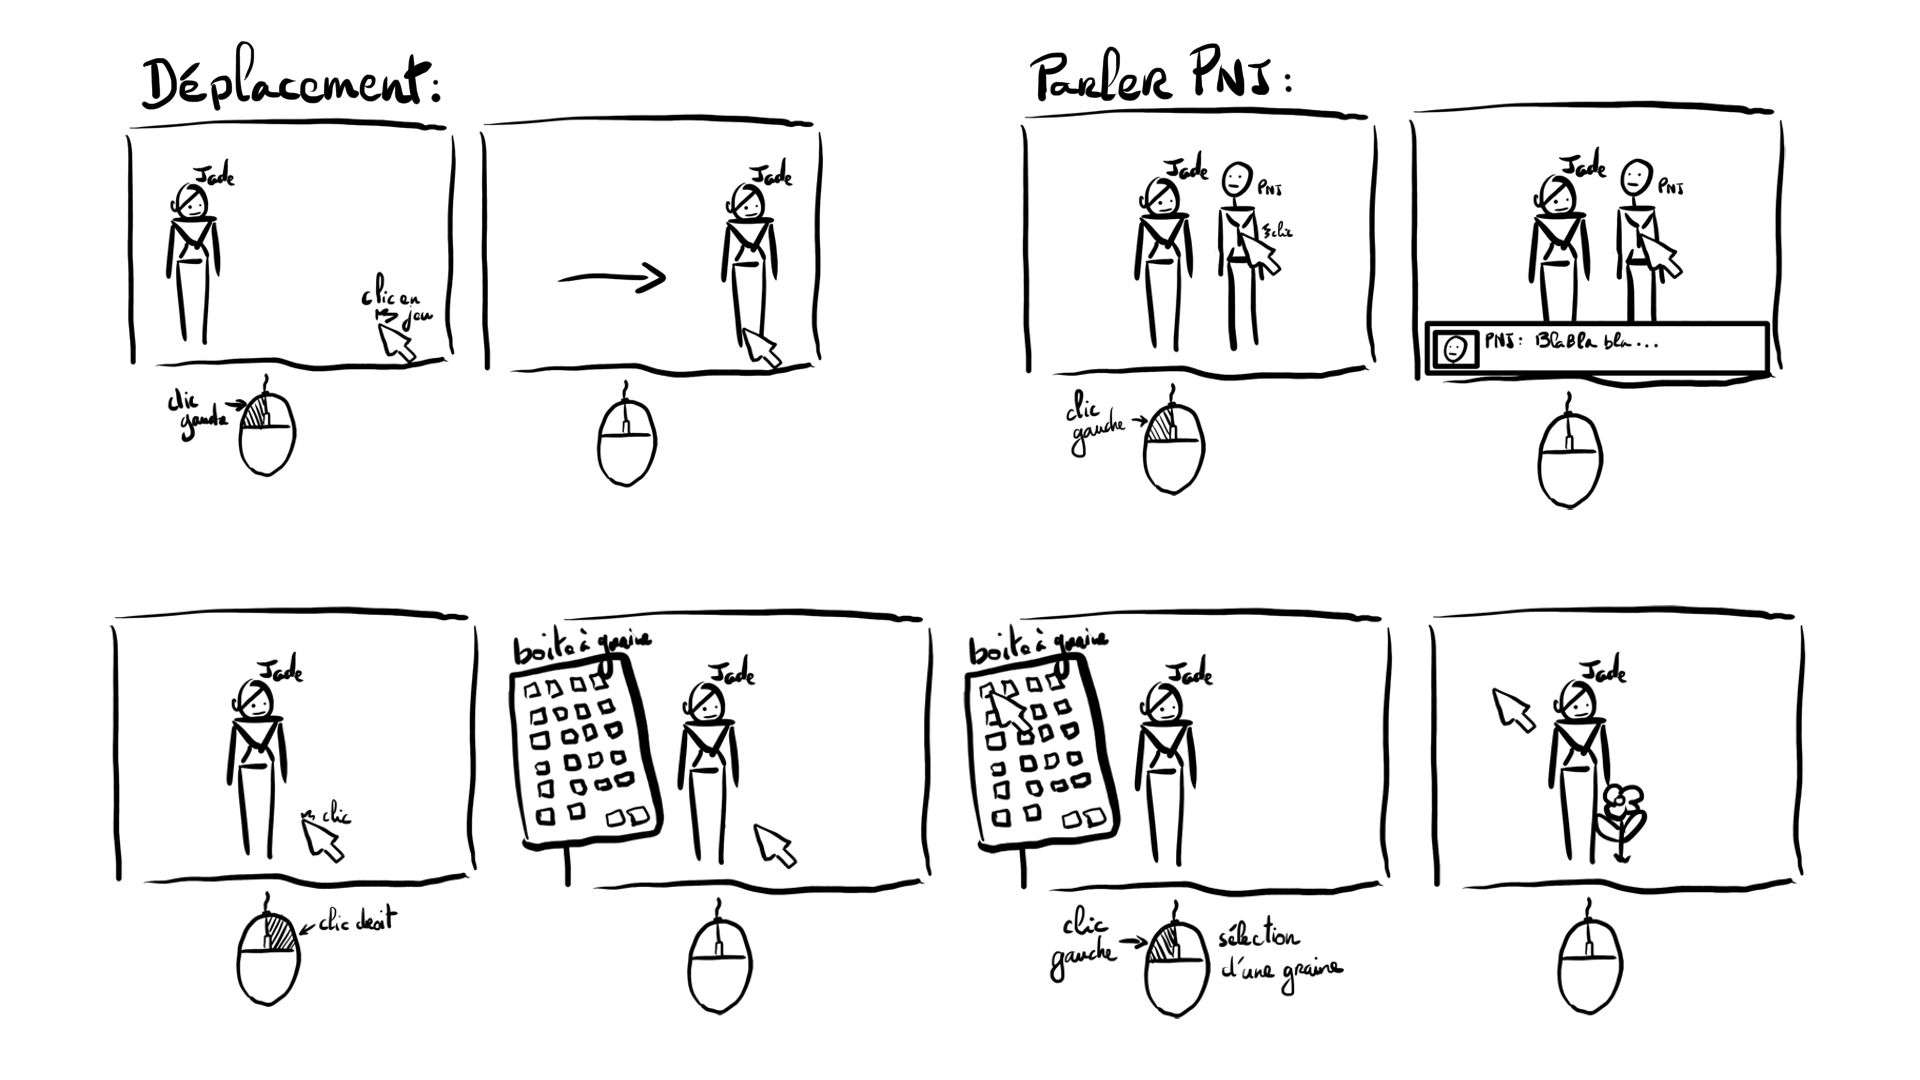 Déplacement:
Jade
clic en
jeu
clic
gauche
Jade
Parler PNJ:
Jade
PNJ
clic
clic
gauche
Jade
PNJ
PNJ: BlaBla bla...
Jade
clic
clic droit
boite à graine
Jade
boite à graine
Jade
clic
gauche
sélection
d'une graine
Jade